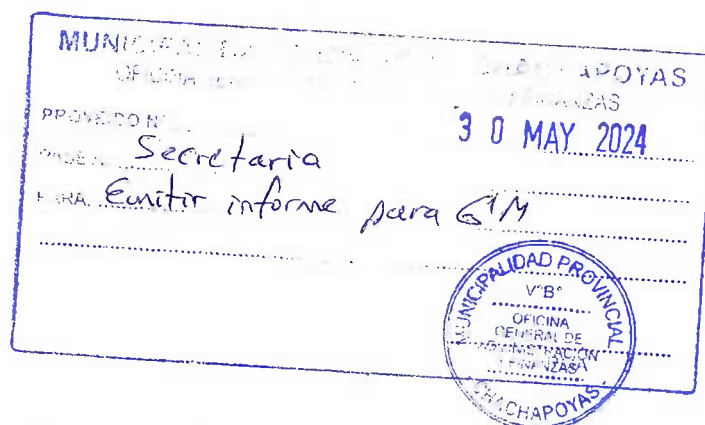 MUNICIPAL CHACHAPOYAS
OFICINA FINANZAS
PROVEIDO N°
30 MAY 2024
PASE A: Secretaria
PARA: Emitir informe para GM
MUNICIPALIDAD PROVINCIAL
V°B°
OFICINA
GENERAL DE
ADMINISTRACIÓN
Y FINANZAS
CHACHAPOYAS